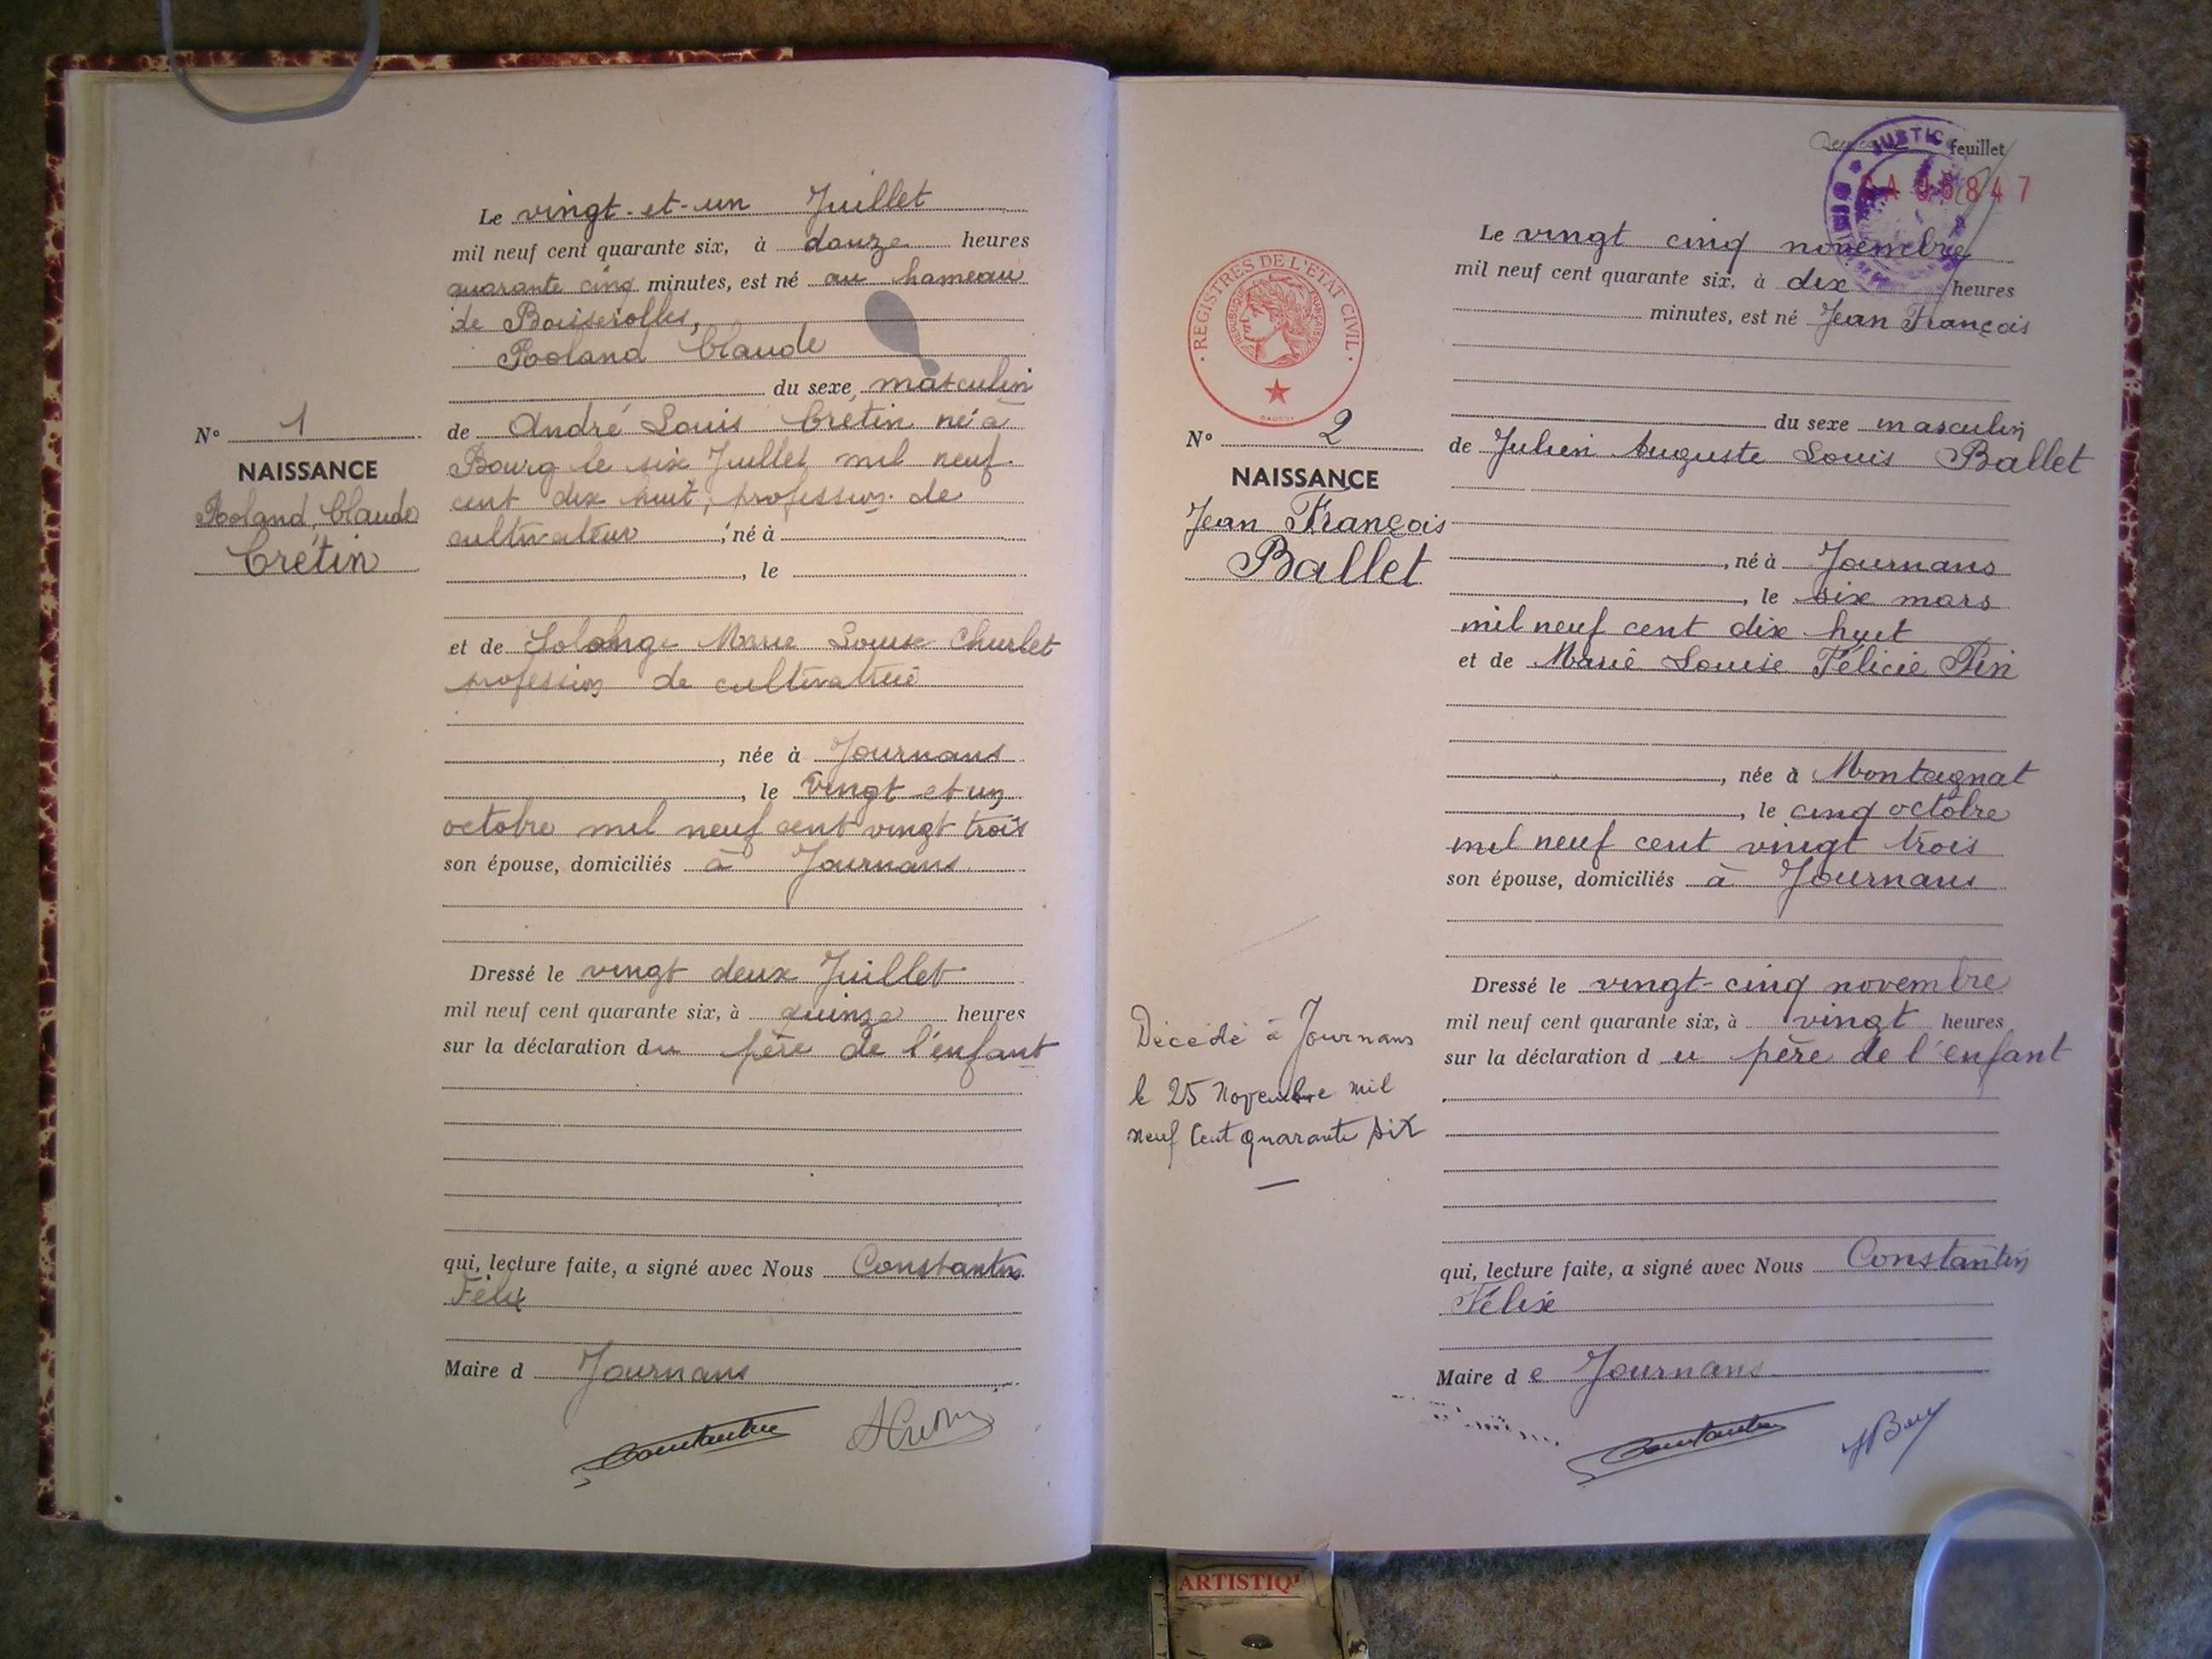 Le vingt-et-un Juillet
mil neuf cent quarante six, à douze heures
quarante cinq minutes, est né au hameau
de Boiserolles,
Roland Claude
du sexe masculin
N° 1
NAISSANCE
Roland, Claude
Crétin
de André Louis Cretin né à
Bourg le six Juillet mil neuf
cent dix huit, profession de
cultivateur, né à
, le
et de Solange Marie Louise Churlet
profession de cultivatrice
, née à Journans
, le vingt et un
octobre mil neuf cent vingt trois
son épouse, domiciliés à Journans
Dressé le vingt deux Juillet
mil neuf cent quarante six, à quinze heures
sur la déclaration du père de l'enfant
qui, lecture faite, a signé avec Nous Constantin
Félix
Maire d Journans
Constantin
feuillet
JUSTIC
847
Le vingt cinq novembre
mil neuf cent quarante six, à dix heures
minutes, est né Jean François
du sexe masculin
· REGISTRES DE L'ETAT CIVIL ·
REPUBLIQUE FRANÇAISE
N° 2
NAISSANCE
Jean François
Ballet
de Julien Auguste Louis Ballet
, né à Journans
, le six mars
mil neuf cent dix huit
et de Marie Louise Félicie Pin
, née à Montagnat
, le cinq octobre
mil neuf cent vingt trois
son épouse, domiciliés à Journans
Dressé le vingt-cinq novembre
mil neuf cent quarante six, à vingt heures
sur la déclaration du père de l'enfant
Décédé à Journans
le 25 Novembre mil
neuf Cent quarante six
qui, lecture faite, a signé avec Nous Constantin
Félix
Maire de Journans
Constantin
ARTISTIQ